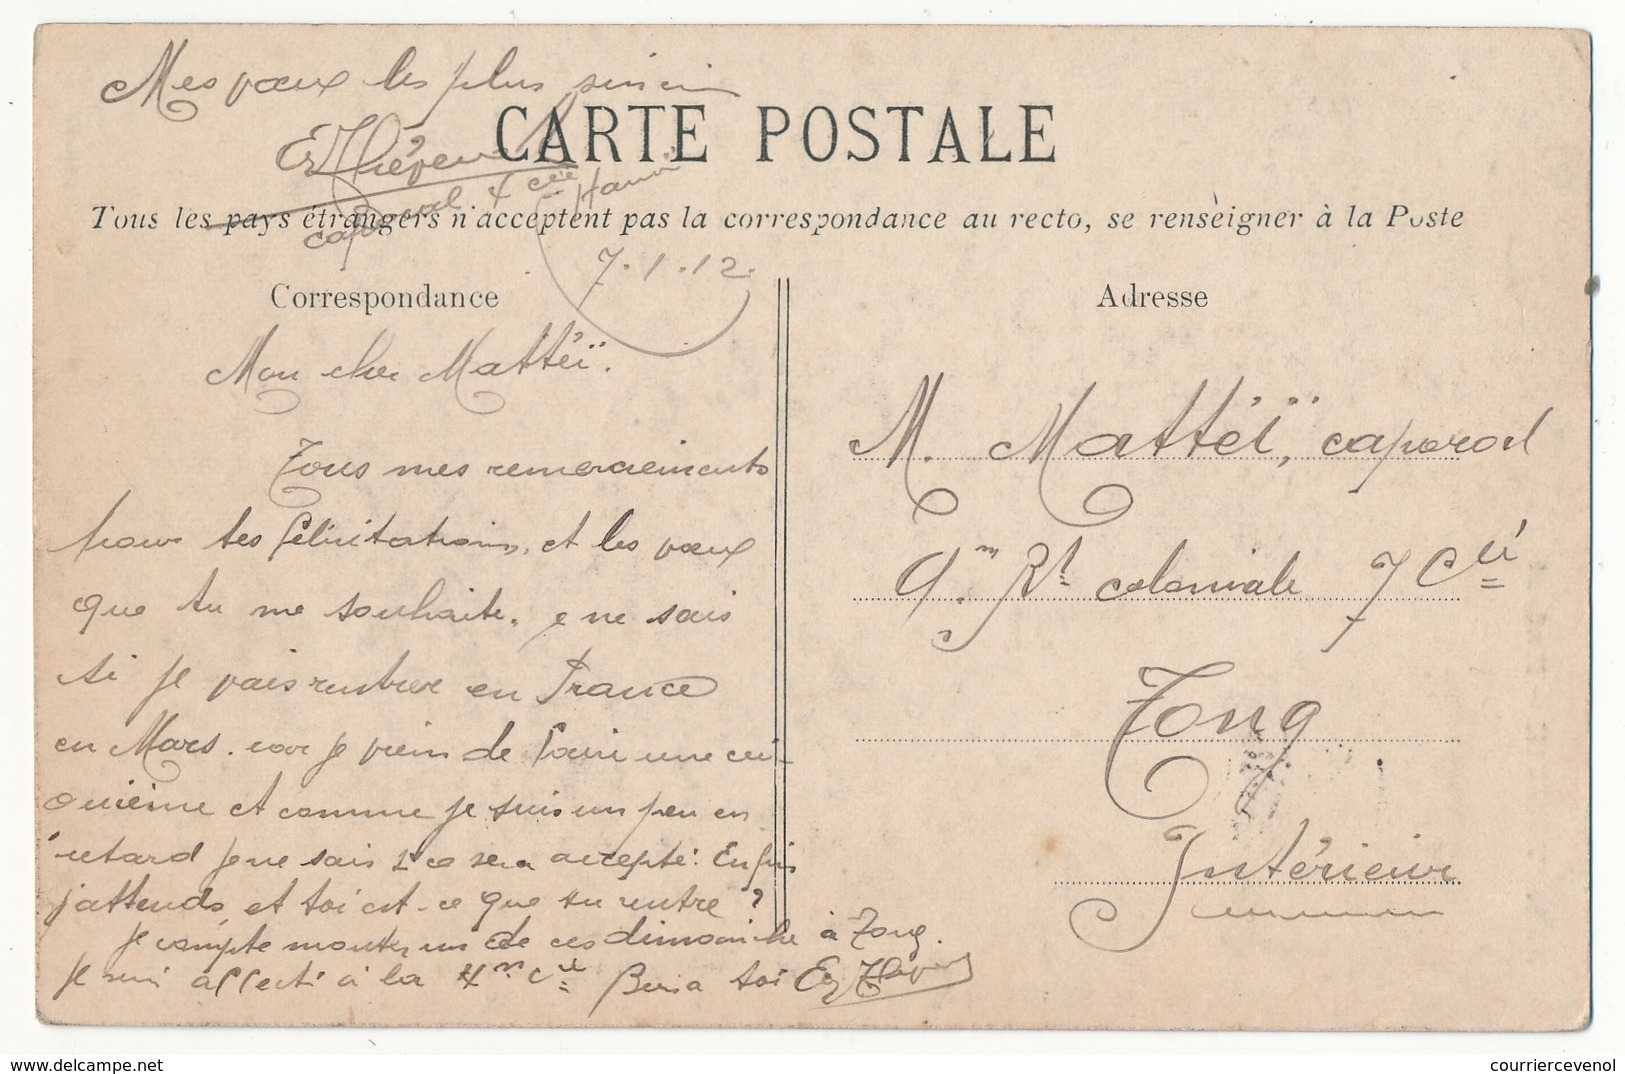 Mes vœux les plus
CARTE POSTALE
caporal 4 cie Hanoi
Tous les pays étrangers n'acceptent pas la correspondance au recto, se renseigner à la Poste
7.1.12.
Correspondance
Mon cher Matteï.
Tous mes remerciements
pour tes félicitations, et les vœux
que tu me souhaite. je ne sais
si je vais rentrer en France
en Mars. car je viens de faire une
et comme je suis un peu en
retard je ne sais si ce sera accepté. Enfin
j'attends, et toi est-ce que tu rentre ?
Je compte monter un de ces dimanche à Tong.
Je suis affecté à la 4me Cie à toi
Adresse
M. Matteï, caporal
9.me Rt coloniale 7 Cie
Tong
Intérieur
courriercevenol
www.delcampe.net